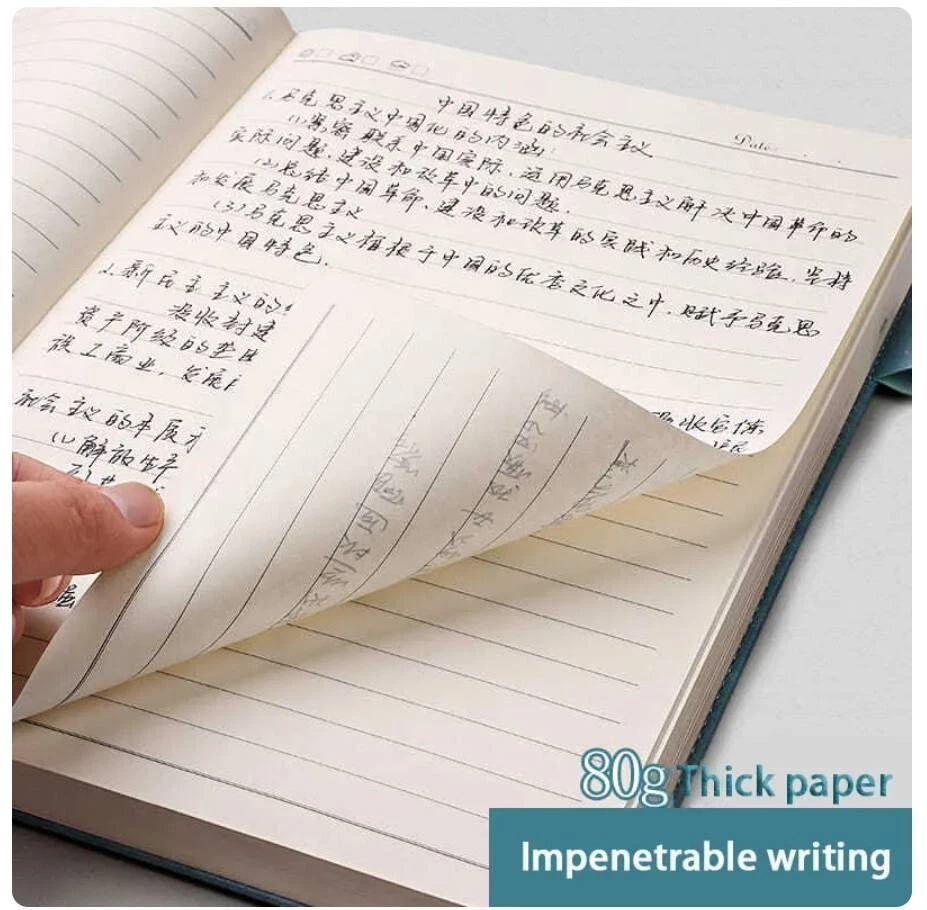 Date
中国特色的社会主义
1.马克思主义中国化的内涵:
(1)紧密联系中国实际,运用马克思主义解决中国革命的
实际问题,建设和改革中的问题.
(2)总结中国革命,建设和改革的实践和历史经验,坚持
和发展马克思主义
(3)马克思主义植根于中国的优秀文化之中,赋予马克思
主义的中国特色.
2.新民主主义的
没收封建
资产阶级的垄
族工商业,发展
社会主义的本质
(1)解放生产
80g Thick paper
Impenetrable writing